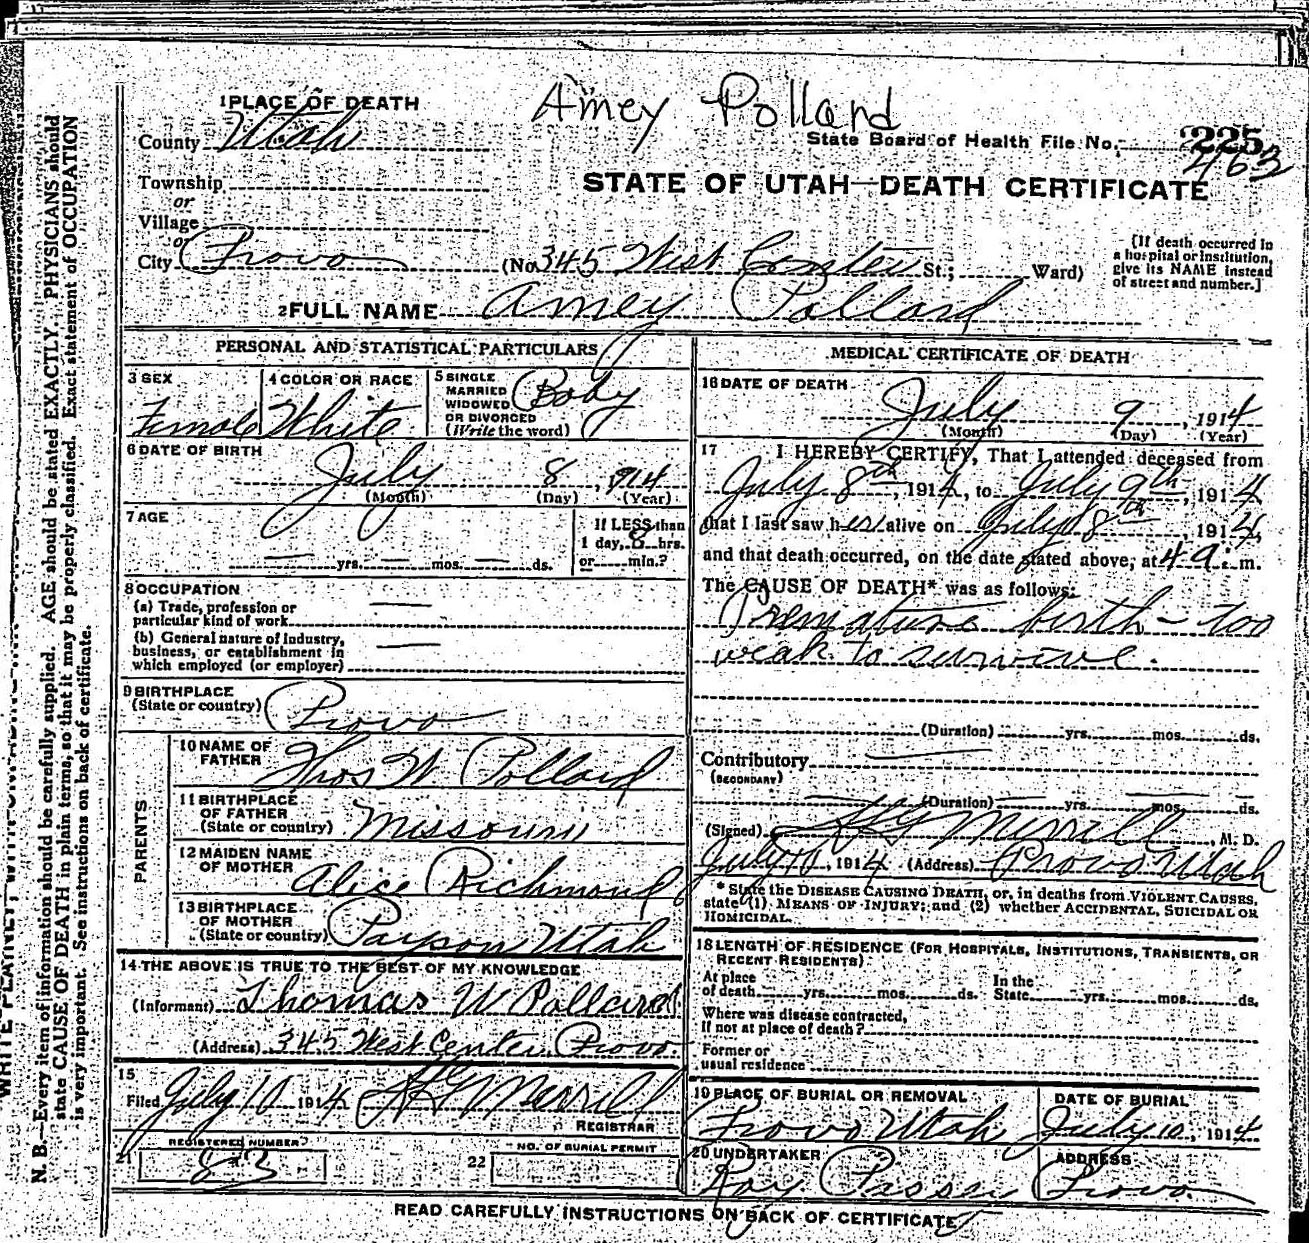 Amey Polland
1 PLACE OF DEATH
County Utah
State Board of Health File No. 225
463
Township
or
Village
or
City Provo
STATE OF UTAH—DEATH CERTIFICATE
(No 345 West Center St.; Ward)
[If death occurred in a hospital or institution, give its NAME instead of street and number.]
2 FULL NAME Amey Pollard
PERSONAL AND STATISTICAL PARTICULARS
3 SEX
Female
4 COLOR OR RACE
White
5 SINGLE
MARRIED
WIDOWED
OR DIVORCED
(Write the word)
Baby
6 DATE OF BIRTH
July 8, 914
(Month) (Day) (Year)
7 AGE
— yrs. — mos. — ds.
If LESS than
1 day, 8 hrs.
or min.?
8 OCCUPATION
(a) Trade, profession or
particular kind of work
(b) General nature of Industry,
business, or establishment in
which employed (or employer)
9 BIRTHPLACE
(State or country) Provo
PARENTS
10 NAME OF
FATHER Thos W Pollard
11 BIRTHPLACE
OF FATHER
(State or country) Missouri
12 MAIDEN NAME
OF MOTHER Alice Richmond
13 BIRTHPLACE
OF MOTHER
(State or country) Payson Utah
14 THE ABOVE IS TRUE TO THE BEST OF MY KNOWLEDGE
(Informant) Thomas W Pollard
(Address) 345 West Center Provo.
15
Filed July 10 1914 H G Merrill
REGISTRAR
21 REGISTERED NUMBER
83
22 NO. OF BURIAL PERMIT
MEDICAL CERTIFICATE OF DEATH
16 DATE OF DEATH
July 9, 1914
(Month) (Day) (Year)
17 I HEREBY CERTIFY, That I attended deceased from
July 8th, 1914, to July 9th, 1914
that I last saw her alive on July 8th, 1914,
and that death occurred, on the date stated above, at 4 a. m.
The CAUSE OF DEATH* was as follows:
Premature birth - too
weak to survive.
(Duration) yrs. mos. ds.
Contributory —
(SECONDARY)
(Duration) — yrs. — mos. — ds.
(Signed) H G Merrill, M. D.
July 10, 1914 (Address) Provo Utah
* State the DISEASE CAUSING DEATH, or, in deaths from VIOLENT CAUSES,
state (1) MEANS OF INJURY; and (2) whether ACCIDENTAL, SUICIDAL OR
HOMICIDAL.
18 LENGTH OF RESIDENCE (FOR HOSPITALS, INSTITUTIONS, TRANSIENTS, OR
RECENT RESIDENTS)
At place
of death yrs. mos. ds.
In the
State yrs. mos. ds.
Where was disease contracted,
if not at place of death?
Former or
usual residence
19 PLACE OF BURIAL OR REMOVAL
Provo Utah
DATE OF BURIAL
July 10, 1914
20 UNDERTAKER
Ray
ADDRESS
Provo
READ CAREFULLY INSTRUCTIONS ON BACK OF CERTIFICATE
N. B.—Every item of information should be carefully supplied. AGE should be stated EXACTLY. PHYSICIANS should
state CAUSE OF DEATH in plain terms, so that it may be properly classified. Exact statement of OCCUPATION
is very important. See instructions on back of certificate.